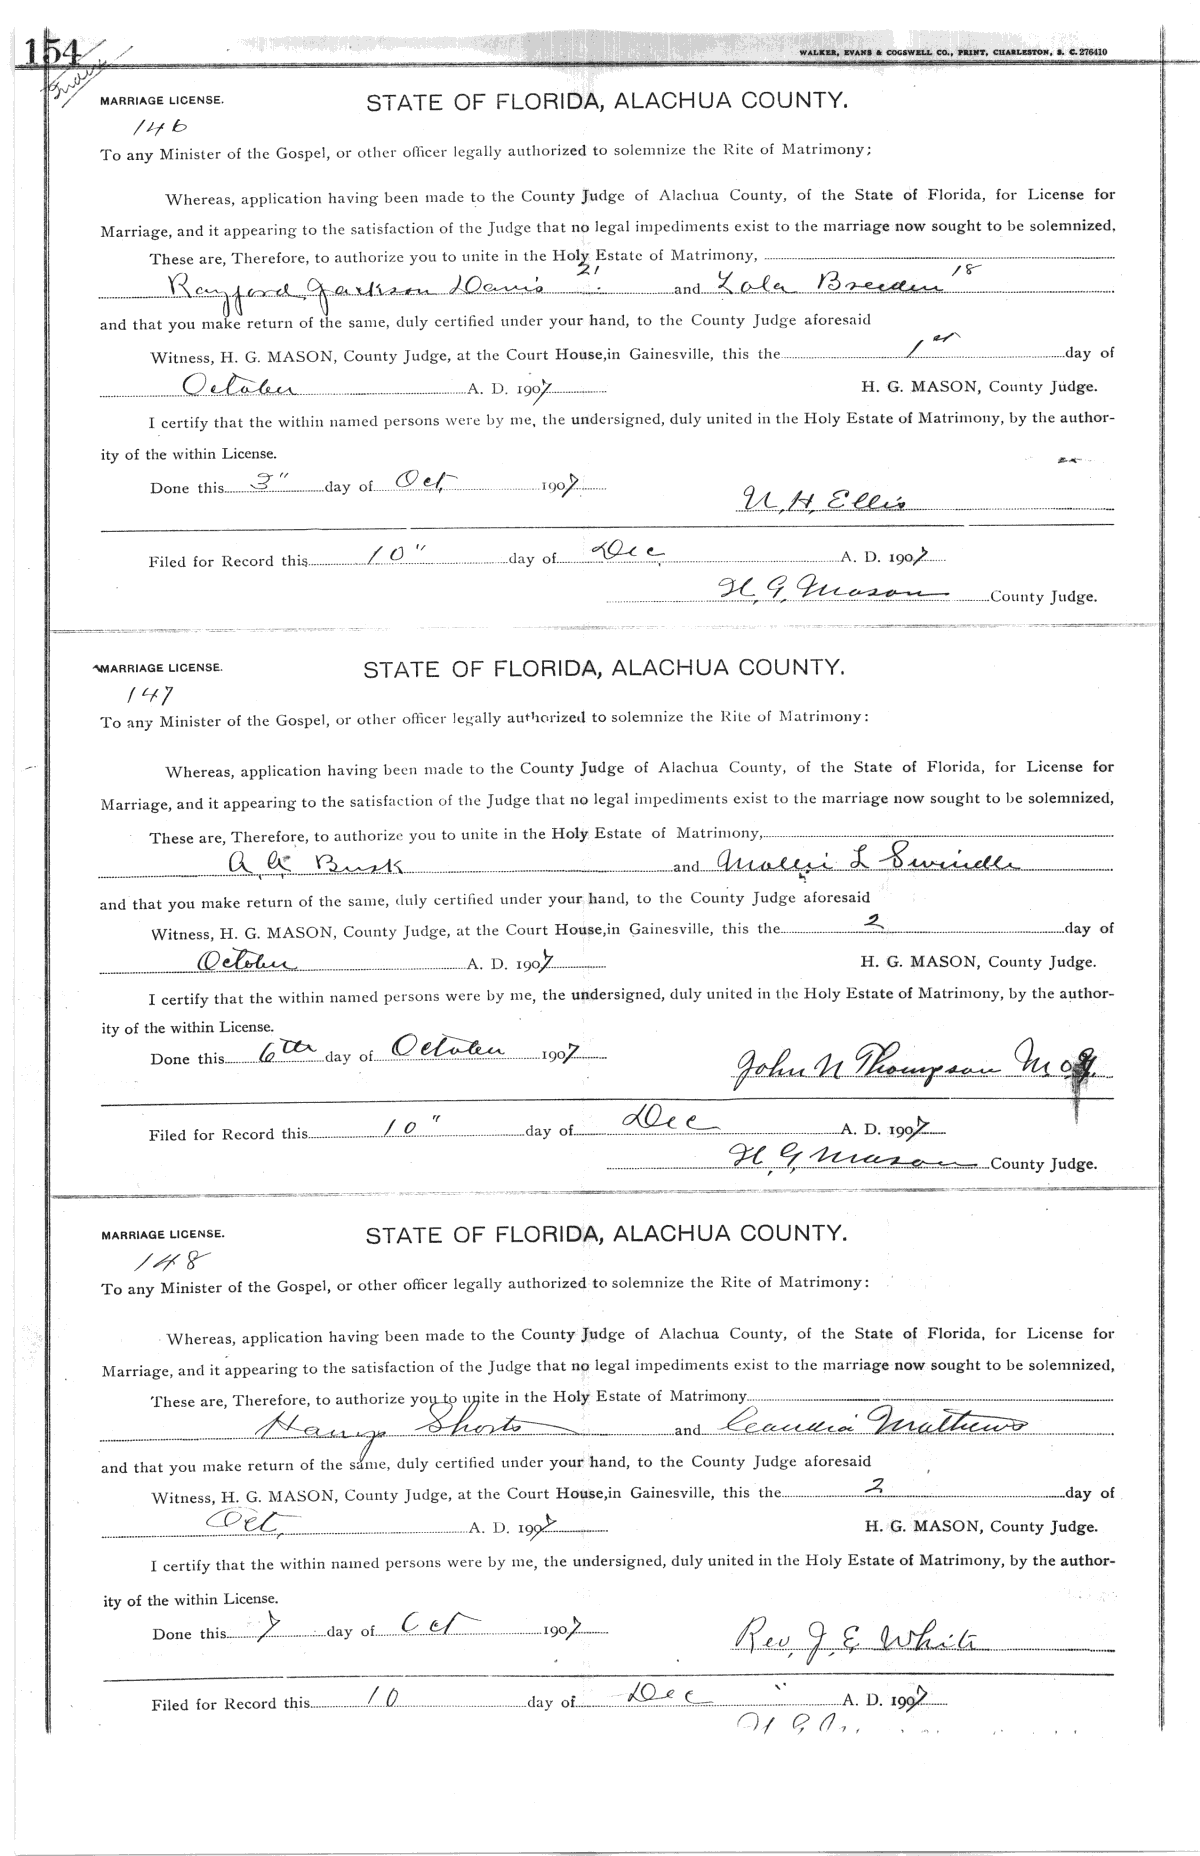 154
WALKER, EVANS & COGSWELL CO., PRINT, CHARLESTON, S. C. 276410
Index
MARRIAGE LICENSE. STATE OF FLORIDA, ALACHUA COUNTY.
146
To any Minister of the Gospel, or other officer legally authorized to solemnize the Rite of Matrimony;
Whereas, application having been made to the County Judge of Alachua County, of the State of Florida, for License for
Marriage, and it appearing to the satisfaction of the Judge that no legal impediments exist to the marriage now sought to be solemnized,
These are, Therefore, to authorize you to unite in the Holy Estate of Matrimony,
Rayford Jackson Davis 21 and Lola Breeden 18
and that you make return of the same, duly certified under your hand, to the County Judge aforesaid
Witness, H. G. MASON, County Judge, at the Court House, in Gainesville, this the 1st day of
October A. D. 1907 H. G. MASON, County Judge.
I certify that the within named persons were by me, the undersigned, duly united in the Holy Estate of Matrimony, by the author-
ity of the within License.
Done this 3" day of Oct, 1907
H. Ellis
Filed for Record this 10" day of Dec, A. D. 1907
H. G. Mason County Judge.
MARRIAGE LICENSE. STATE OF FLORIDA, ALACHUA COUNTY.
147
To any Minister of the Gospel, or other officer legally authorized to solemnize the Rite of Matrimony:
Whereas, application having been made to the County Judge of Alachua County, of the State of Florida, for License for
Marriage, and it appearing to the satisfaction of the Judge that no legal impediments exist to the marriage now sought to be solemnized,
These are, Therefore, to authorize you to unite in the Holy Estate of Matrimony,
A. A. Busk and Mollie L Swindle
and that you make return of the same, duly certified under your hand, to the County Judge aforesaid
Witness, H. G. MASON, County Judge, at the Court House, in Gainesville, this the 2 day of
October A. D. 1907 H. G. MASON, County Judge.
I certify that the within named persons were by me, the undersigned, duly united in the Holy Estate of Matrimony, by the author-
ity of the within License.
Done this 6th day of October 1907
John N Thompson M.O.G.
Filed for Record this 10" day of Dec A. D. 1907
H. G. Mason County Judge.
MARRIAGE LICENSE. STATE OF FLORIDA, ALACHUA COUNTY.
148
To any Minister of the Gospel, or other officer legally authorized to solemnize the Rite of Matrimony:
Whereas, application having been made to the County Judge of Alachua County, of the State of Florida, for License for
Marriage, and it appearing to the satisfaction of the Judge that no legal impediments exist to the marriage now sought to be solemnized,
These are, Therefore, to authorize you to unite in the Holy Estate of Matrimony
Shorts and Mathews
and that you make return of the same, duly certified under your hand, to the County Judge aforesaid
Witness, H. G. MASON, County Judge, at the Court House, in Gainesville, this the 2 day of
Oct, A. D. 1907 H. G. MASON, County Judge.
I certify that the within named persons were by me, the undersigned, duly united in the Holy Estate of Matrimony, by the author-
ity of the within License.
Done this 7 day of Oct 1907
Rev. J. E. White
Filed for Record this 10 day of Dec " A. D. 1907